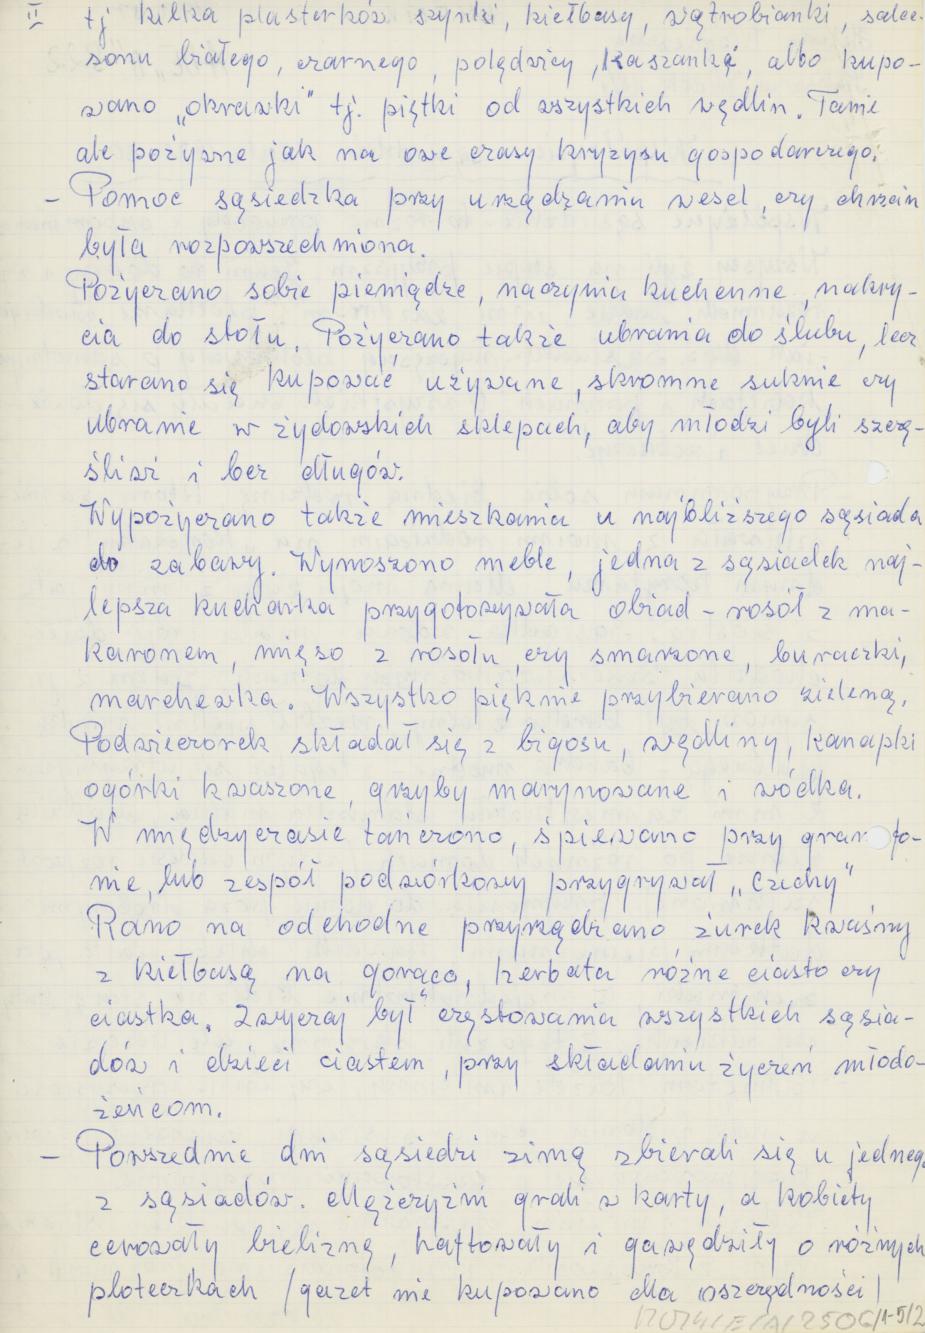 II tj kilka plasterków szynki, kiełbasy, wątrobianki, salce-
sonu białego, czarnego, polędwicy, kaszankę, albo kupo-
wano „okrawki" tj. piętki od wszystkich wędlin. Tanie
ale pożywne jak na owe czasy kryzysu gospodarczego.
– Pomoc sąsiedzka przy urządzaniu wesel, czy chrzcin
była rozpowszechniona.
Pożyczano sobie pieniądze, naczynia kuchenne, nakry-
cia do stołu. Pożyczano także ubrania do ślubu, lecz
starano się kupować używane, skromne suknie czy
ubranie w żydowskich sklepach, aby młodzi byli szczę-
śliwi i bez długów.
Wypożyczano także mieszkania u najbliższego sąsiada
do zabawy. Wynoszono meble, jedna z sąsiadek naj-
lepsza kucharka przygotowywała obiad – rosół z ma-
karonem, mięso z rosołu, czy smażone, buraczki,
marchewka. Wszystko pięknie przybierano zieleną.
Podwieczorek składał się z bigosu, wędliny, kanapki
ogórki kwaszone, grzyby marynowane i wódka.
W międzyczasie tańczono, śpiewano przy gramofo-
nie, lub zespół podwórkowy przygrywał „Czichy"
Rano na odchodne przyrządzano żurek kwaśny
z kiełbasą na gorąco, herbata różne ciasto czy
ciastka. Zwyczaj był częstowania wszystkich sąsia-
dów i dzieci ciastem, przy składaniu życzeń młodo-
żeńcom.
– Powszednie dni sąsiedzi zimą zbierali się u jednego
z sąsiadów. Mężczyźni grali w karty, a kobiety
cerowały bieliznę, haftowały i gawędziły o różnych
ploteczkach /gazet nie kupowano dla oszczędności/